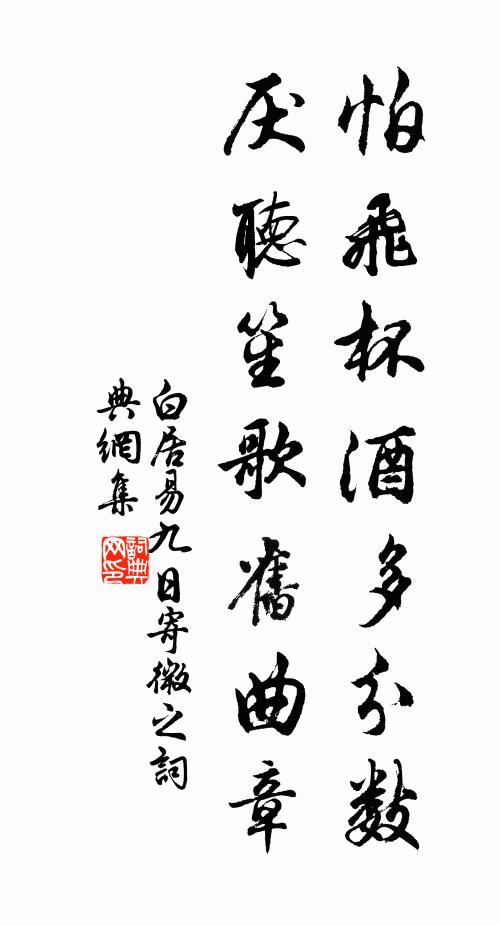 怕飛杯酒多分數
厌聽笙歌舊曲章
白居易九日寄微之詞
典網集
詞典網印